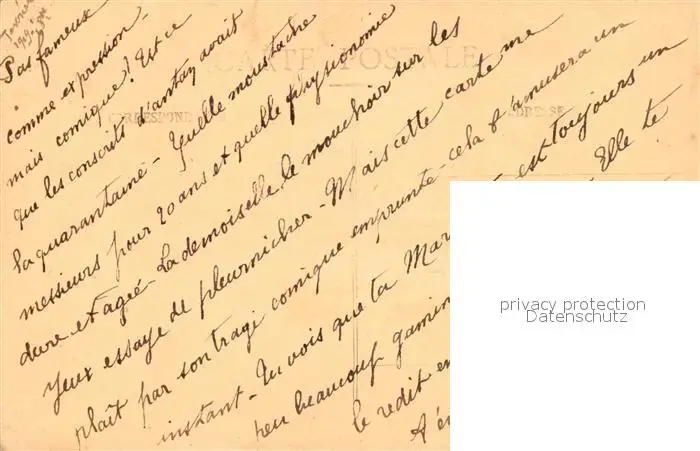 Janvier
1919
Pas fameux
comme expression -
mais comique! Est ce
que les conscrits d'antan avait
la quarantaine - Quelle moustache
messieurs pour 20 ans et quelle physionomie
dure et agée - La demoiselle, le mouchoir sur les
yeux essaye de pleurnicher - Mais cette carte me
plaît par son tragi comique emprunté - cela t'amusera un
instant - Tu vois que ta Mar est toujours un
peu beaucoup gamin Elle te
le redit en
CARTE POSTALE
CORRESPONDANCE
ADRESSE
privacy protection
Datenschutz